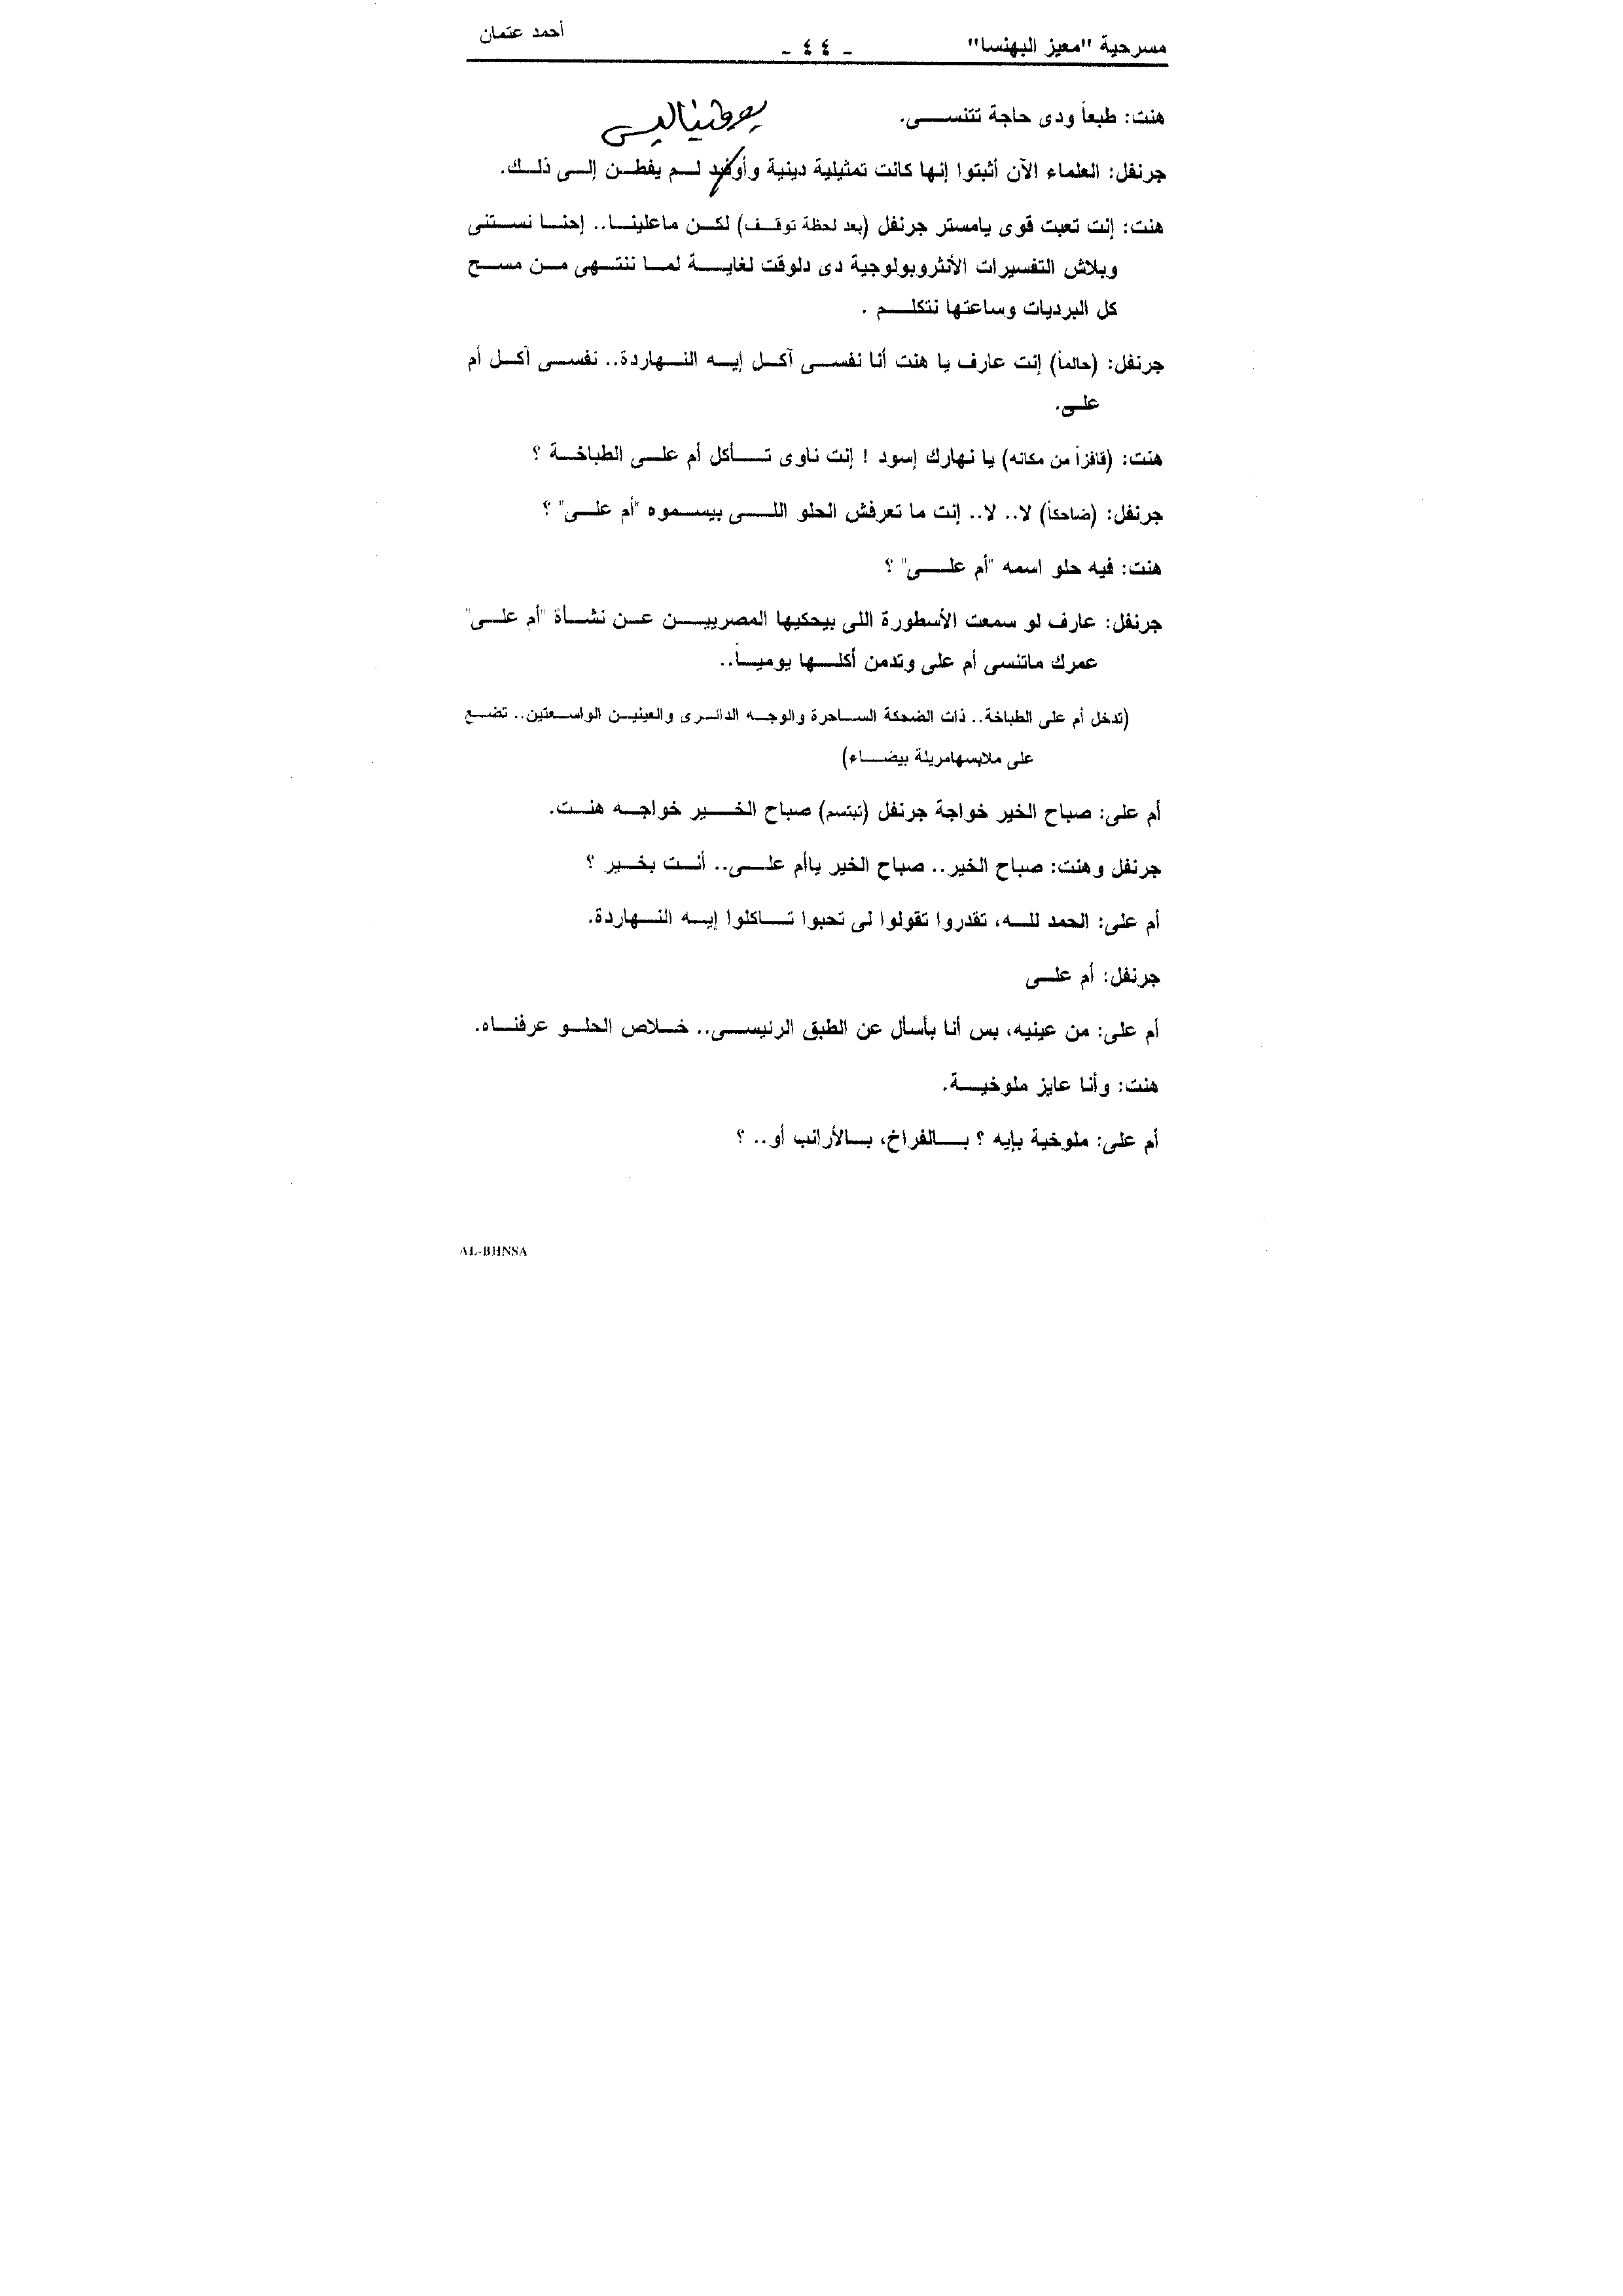 مسرحية "معيز البهنسا" - ٤٤ - أحمد عتمان
هنت: طبعاً ودى حاجة تتنسى.
جرنفل: العلماء الآن أثبتوا إنها كانت تمثيلية دينية وأوفيد لم يفطن إلى ذلك.
هنت: إنت تعبت قوى يامستر جرنفل (بعد لحظة توقف) لكن ماعلينا.. إحنا نستنى
وبلاش التفسيرات الأنثروبولوجية دى دلوقت لغاية لما ننتهى من مسح
كل البرديات وساعتها نتكلم .
جرنفل: (حالماً) إنت عارف يا هنت أنا نفسى آكل إيه النهاردة.. نفسى آكل أم
على.
هنت: (قافزاً من مكانه) يا نهارك إسود ! إنت ناوى تأكل أم على الطباخة ؟
جرنفل: (ضاحكاً) لا.. لا.. إنت ما تعرفش الحلو اللى بيسموه "أم على" ؟
هنت: فيه حلو اسمه "أم على" ؟
جرنفل: عارف لو سمعت الأسطورة اللى بيحكيها المصريين عن نشأة "أم على"
عمرك ماتنسى أم على وتدمن أكلها يومياً..
(تدخل أم على الطباخة.. ذات الضحكة الساحرة والوجه الدائرى والعينين الواسعتين.. تضع
على ملابسهامريلة بيضاء)
أم على: صباح الخير خواجة جرنفل (تبتسم) صباح الخير خواجه هنت.
جرنفل وهنت: صباح الخير.. صباح الخير ياأم على.. أنت بخير ؟
أم على: الحمد لله، تقدروا تقولوا لى تحبوا تاكلوا إيه النهاردة.
جرنفل: أم على
أم على: من عينيه، بس أنا بأسأل عن الطبق الرئيسى.. خلاص الحلو عرفناه.
هنت: وأنا عايز ملوخية.
أم على: ملوخية بإيه ؟ بالفراخ، بالأرانب أو.. ؟
AL-BHNSA